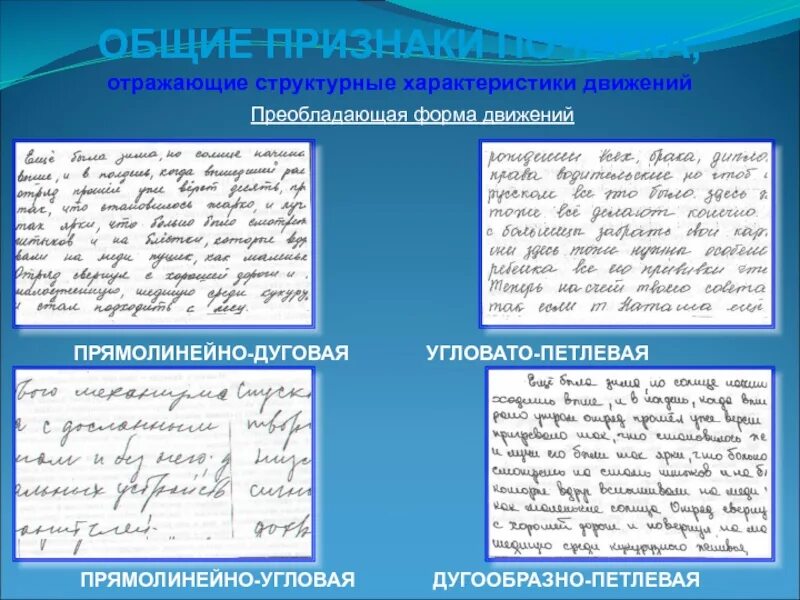 ОБЩИЕ ПРИЗНАКИ ПОЧЕРКА,
отражающие структурные характеристики движений
Преобладающая форма движений
Ещё была зима, но солнце начина
выше, и в полдень, когда вышедший ран
отряд прошёл уже вёрст десять, пр
так, что становилось жарко, и луч
так ярки, что больно было смотреть
штыков и на блёстки, которые вдр
вали на меди пушек, как маленьк
Отряд свернул с хорошей дороги и
малоезженную, шедшую среди кукуру
и стал подходить с лесу.
рождении всех, брака, дипло
права водительские но чтоб
русском все это было. Здесь
тоже всё делают конечно.
с больницы забрать свой кар
они здесь тоже нужны особен
ребенка все его прививки
Теперь насчет твоего совета
так если т Наташа ещё
ПРЯМОЛИНЕЙНО-ДУГОВАЯ
УГЛОВАТО-ПЕТЛЕВАЯ
того механизма Спуск
а с досланным твор
ком и без него. д низ
альных устройств сигн
дохв
Ещё была зима, но солнце начин
ходилось выше, и в полдень, когда выш
рано утром отряд прошёл уже верст
пригревало так, что становилось ж
и лучи его были так ярки, что больно
смотреть на сталь штыков и на б
которые вдруг вспыхивали на меди
как маленькие солнца. Отряд сверну
с хорошей дороги и повернул на ма
шедшую среди кукурузного жнивья,
ПРЯМОЛИНЕЙНО-УГЛОВАЯ
ДУГООБРАЗНО-ПЕТЛЕВАЯ